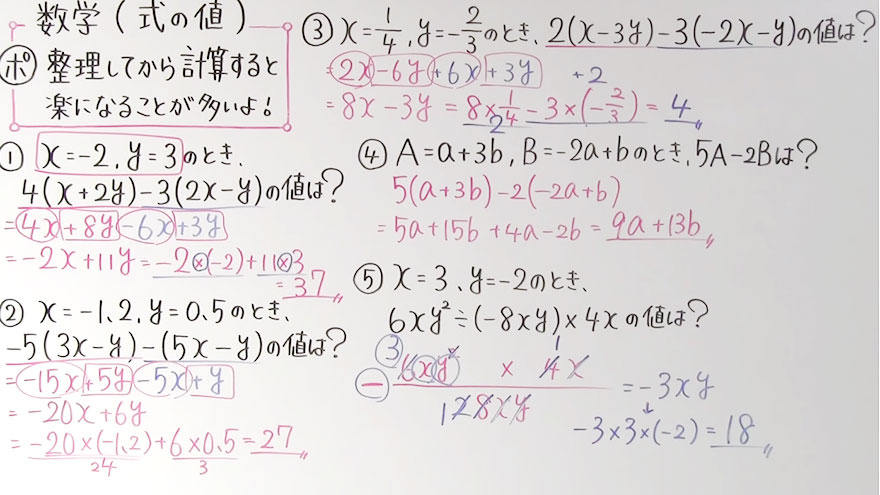 数学(式の値)
ポ 整理してから計算すると
楽になることが多いよ!
① x=-2, y=3のとき、
4(x+2y)-3(2x-y)の値は?
=4x+8y-6x+3y
=-2x+11y=-2×(-2)+11×3
=37
② x=-1.2, y=0.5のとき、
-5(3x-y)-(5x-y)の値は?
=-15x+5y-5x+y
=-20x+6y
=-20×(-1.2)+6×0.5=27
24 3
③ x=1/4, y=-2/3のとき、2(x-3y)-3(-2x-y)の値は?
=2x-6y+6x+3y +2
=8x-3y=8×1/4-3×(-2/3)=4
2
④ A=a+3b, B=-2a+bのとき、5A-2Bは?
5(a+3b)-2(-2a+b)
=5a+15b+4a-2b=9a+13b
⑤ x=3、y=-2のとき、
6xy²÷(-8xy)×4xの値は?
3 1
- 6xy² × 4x
=-3xy
1 2 8xy
-3×3×(-2)=18